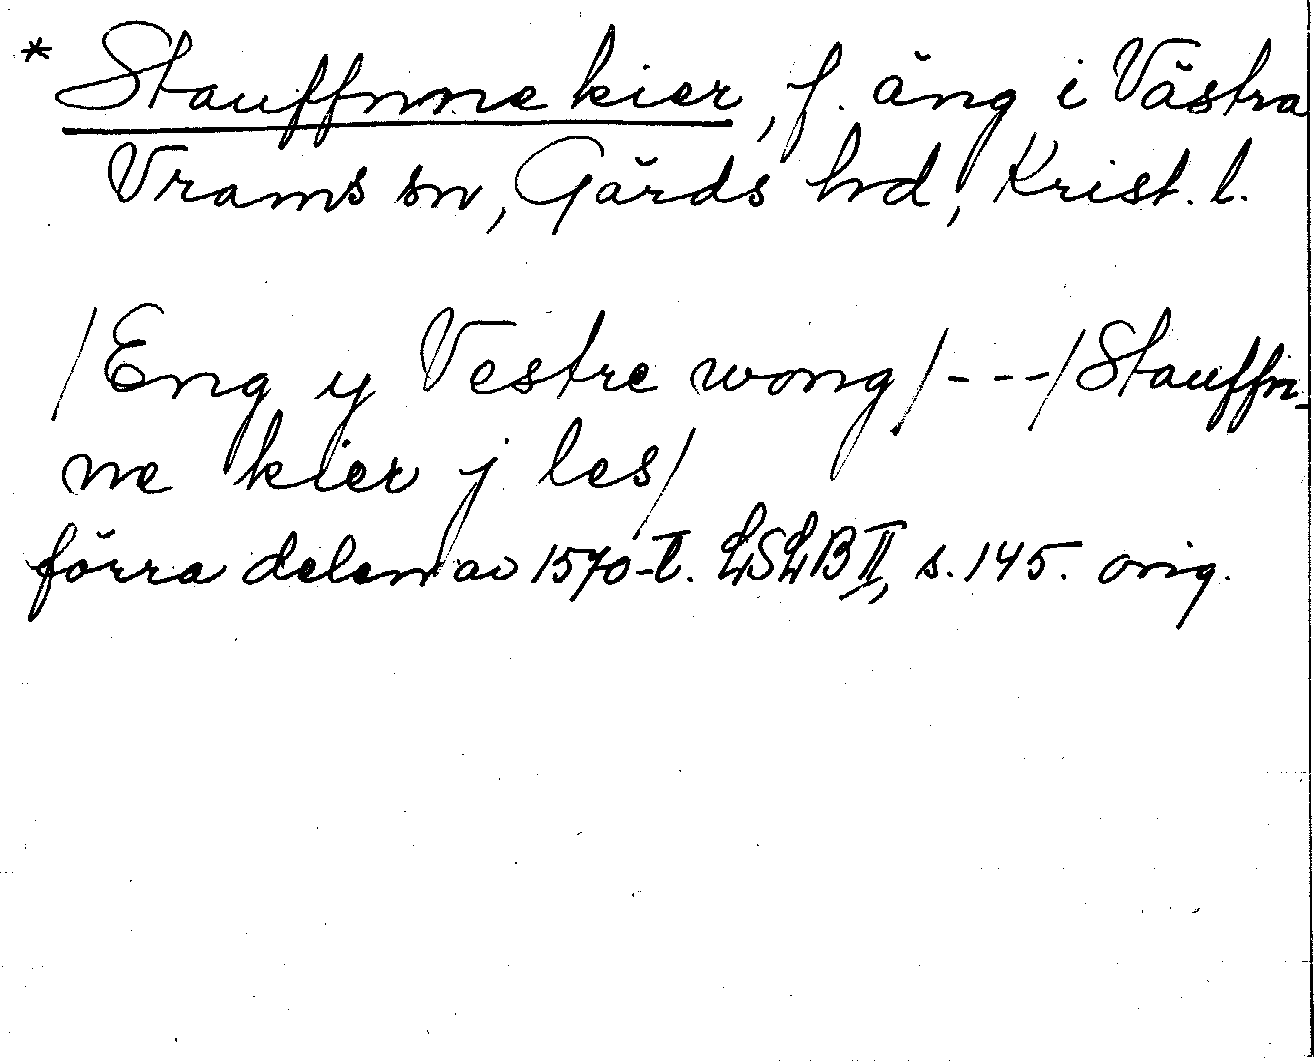 * Stauffnnne kier, f. äng i Västra
Vrams sn, Gärds hd, Krist. l.
/Eng y Vestre wong/---/Stauffn-
ne kier j les/
förra delen av 1570-t. LSLB II, s. 145. orig.